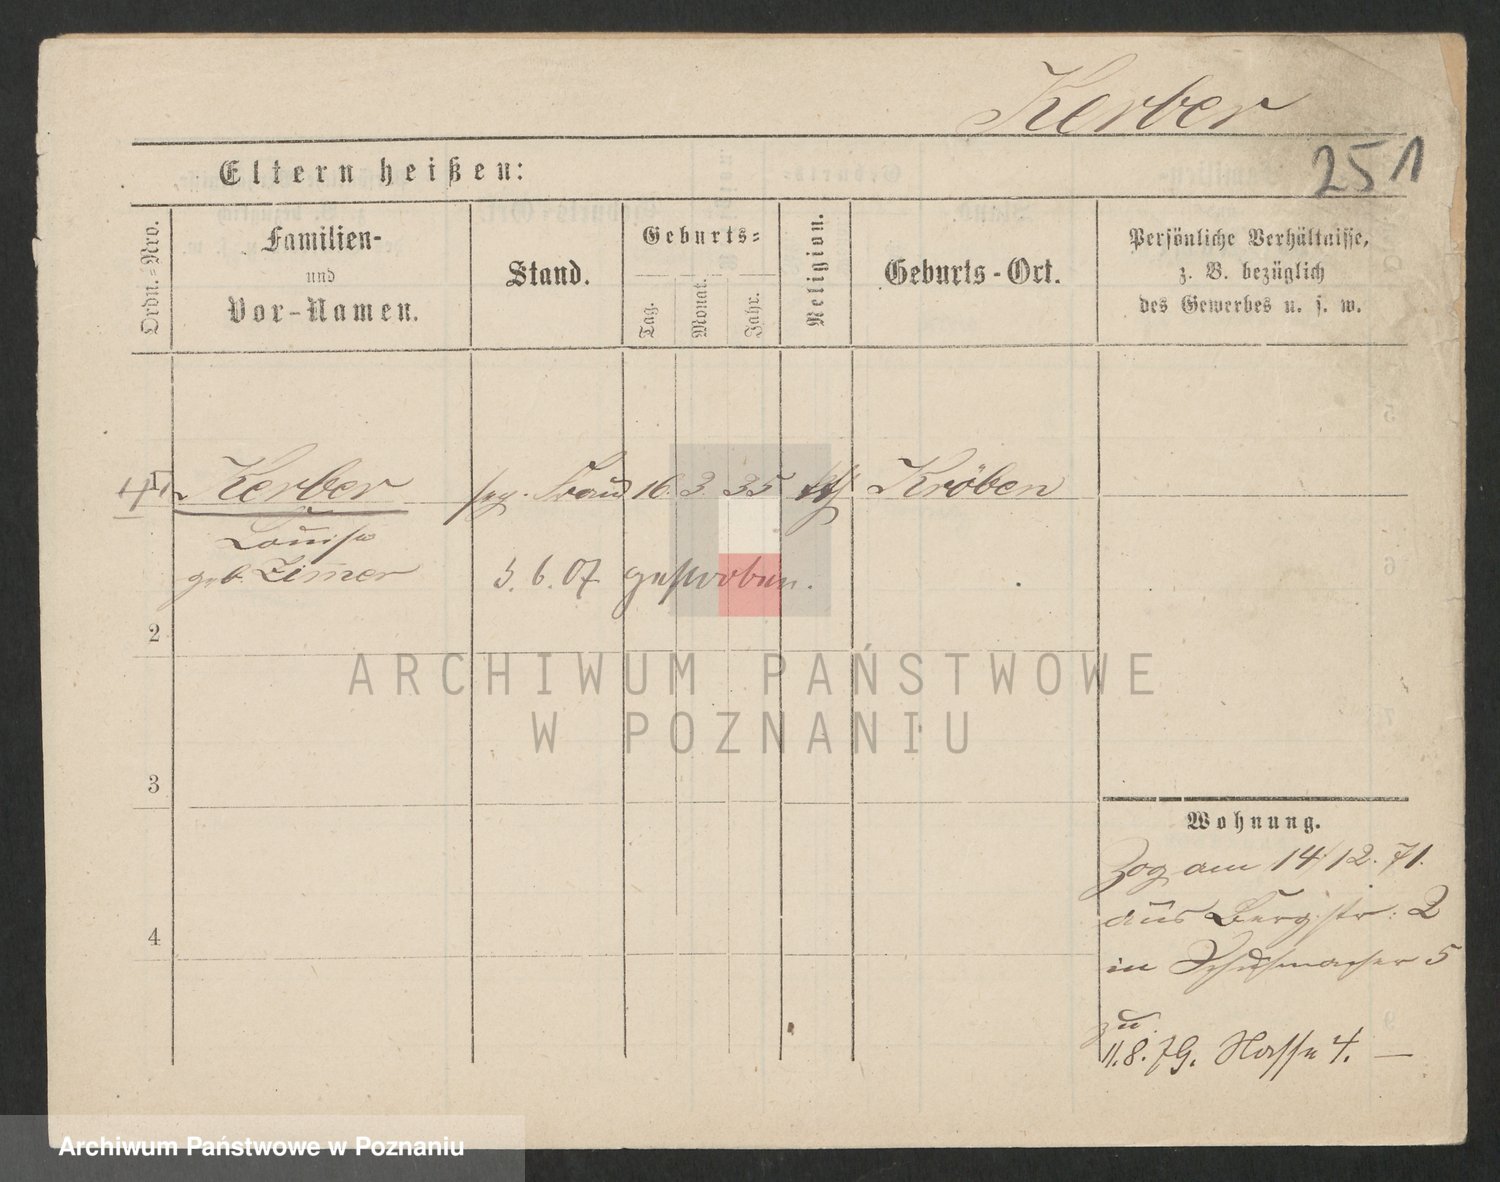 Kerber
251
Eltern heißen:
Ordn.=Nro.
Familien-
und
Vor-Namen.
Stand.
Geburts=
Tag.
Monat.
Jahr.
Religion.
Geburts-Ort.
Persönliche Verhältnisse,
z. B. bezüglich
des Gewerbes u. s. w.
1
Kerber Frau 16 3 35 Kröben
Louise
geb. Zimer 5. 6. 07 gestorben.
2
3
4
Wohnung.
Zog am 14/12. 71.
aus Bergstr: 2
in Schuhmacher 5
11. 8. 79. Nasse 4. —
ARCHIWUM PAŃSTWOWE
W POZNANIU
Archiwum Państwowe w Poznaniu